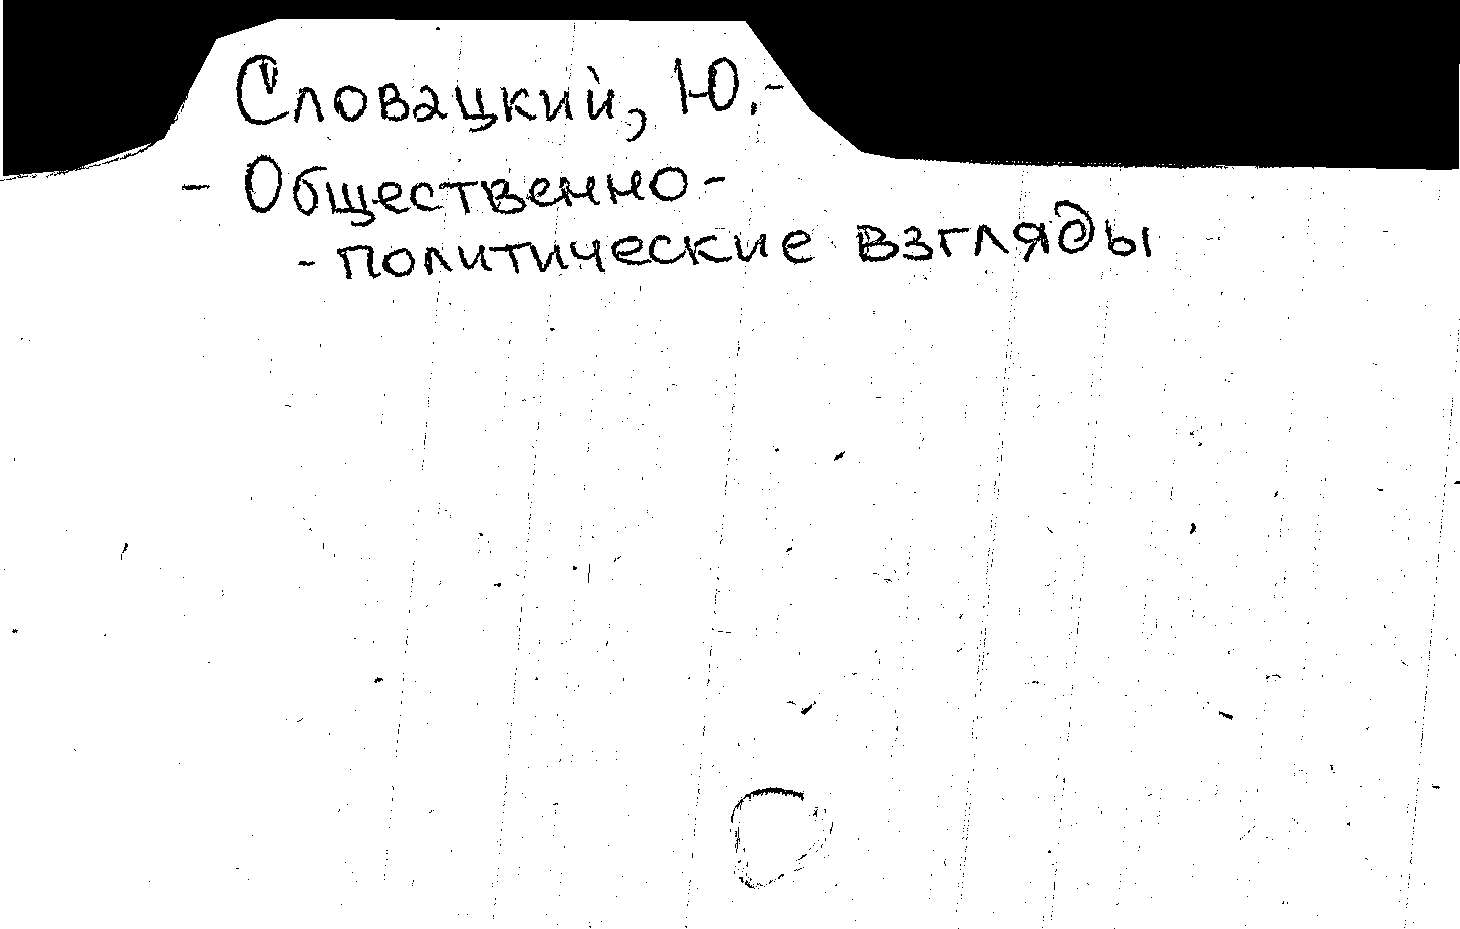 Словацкий, Ю.-
- Общественно-
- политические взгляды